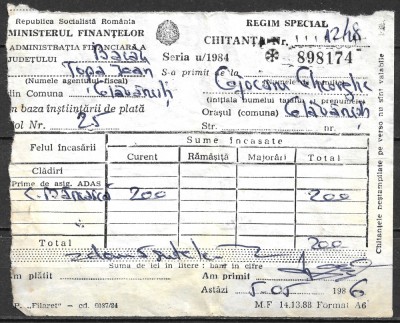 Republica Socialistă România
MINISTERUL FINANȚELOR
ADMINISTRAȚIA FINANCIARĂ A
JUDEȚULUI
(Numele agentului fiscal)
din Comuna
în baza înștiințării de plată
Rol Nr. 25
REGIM SPECIAL
CHITANȚA Nr.
Seria u/1984 ❋ 898174
S-a primit de la Cojocaru Gheorghe
(inițiala numelui tatălui și prenumele)
Orașul (comuna)
Str. nr.
Felul încasării Sume încasate
Curent Rămășiță Majorări Total
Clădiri
Prime de asig. ADAS
200 200
Total 200
Suma de lei în litere: bani în cifre
Am plătit Am primit
Astăzi 5.05 1986
I.P. „Filaret" - cd. 6187/84 M.F 14.13.88 Format A6
Chitanțele neștampilate pe verso nu sînt valabile